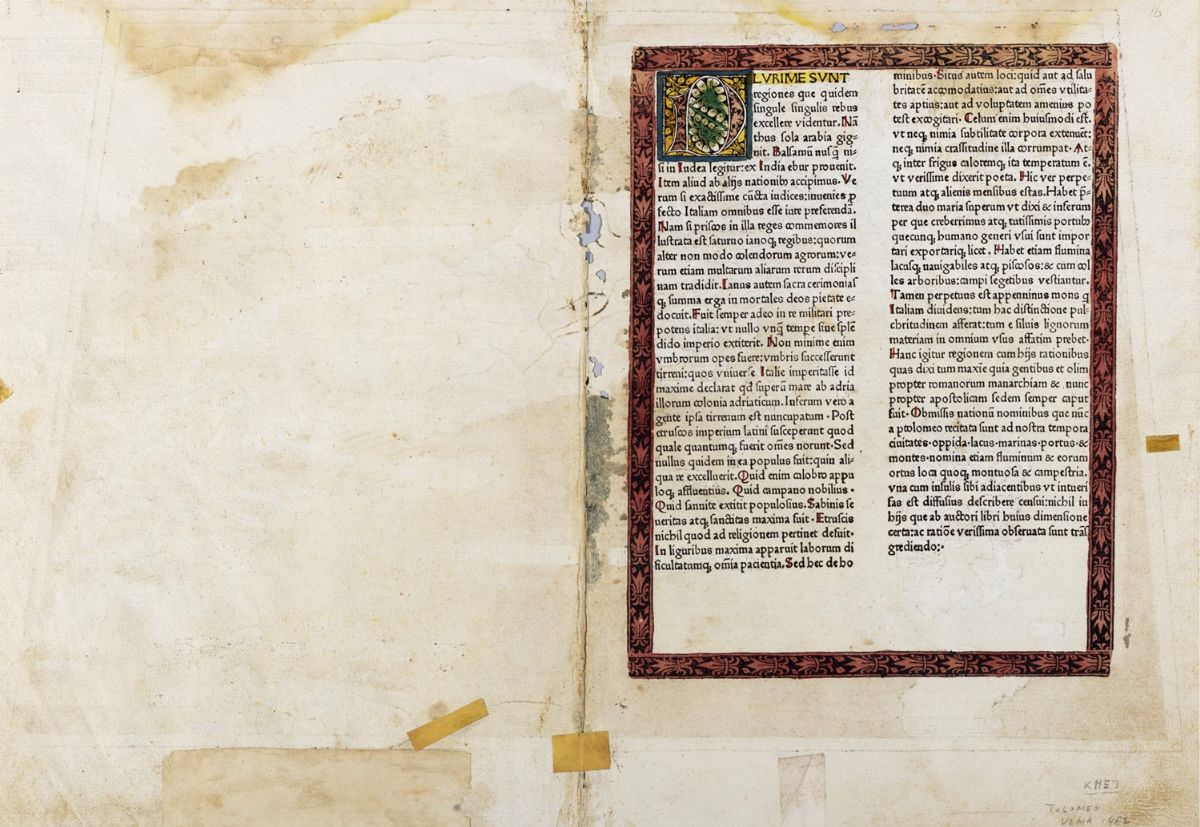 PLVRIME SVNT
regiones que quidem
singule singulis rebus
excellere videntur. Nã
thus sola arabia gig-
nit. Balsamũ nusq̃ ni-
si in Iudea legitur: ex India ebur prouenit.
Item aliud ab alijs nationib9 accipimus. Ve
rum si exactissime cũcta iudices: inuenies ꝓ
fecto Italiam omnibus esse iure preferendã.
Nam si priscos in illa reges commemores il
lustrata est saturno ianoqꝫ regibus: quorum
alter non modo colendorum agrorum: ve-
rum etiam multarum aliarum rerum discipli
nam tradidit. Ianus autem sacra cerimonias
qꝫ summa erga in mortales deos pietate e-
docuit. Fuit semper adeo in re militari pre-
potens italia: vt nullo vnq̃ tempe sine splẽ
dido imperio extiterit. Non minime enim
vmbrorum opes fuere: vmbris successerunt
tirreni: quos vniuerse Italie imperitasse id
maxime declarat qd superũ mare ab adria
illorum colonia adriaticum. Inferum vero a
gente ipsa tirrenum est nuncupatum. Post
etruscos imperium latini susceperunt quod
quale quantumqꝫ fuerit omẽs norunt. Sed
nullus quidem in ea populus fuit: quin ali-
qua re excelluerit. Quid enim calobro appu
loqꝫ affluentius. Quid campano nobilius.
Quid sannite extitit populosius. Sabinis se
ueritas atqꝫ sanctitas maxima fuit. Etruscis
nichil quod ad religionem pertinet defuit.
In liguribus maxima apparuit laborum di
ficultatumqꝫ omĩa pacientia. Sed hec de ho
minibus. Situs autem loci: quid aut ad salu
britatẽ accomodatius: aut ad omẽs vtilita-
tes aptius: aut ad voluptatem amenius po
test excogitari. Celum enim huiusmodi est.
vt neqꝫ nimia subtilitate corpora extenuet:
neqꝫ nimia crassitudine illa corrumpat. At-
qꝫ inter frigus caloremqꝫ ita temperatum ẽ.
vt verissime dixerit poeta. Hic ver perpe-
tuum atqꝫ alienis mensibus estas. Habet p̃-
terea duo maria superum vt dixi & inferum
per que creberrimus atqꝫ tutissimis portub9
quecunqꝫ humano generi vsui sunt impor
tari exportariqꝫ licet. Habet etiam flumina
lacusqꝫ nauigabiles atqꝫ piscosos: & cum col
les arboribus: campi segetibus vestiantur.
Tamen perpetuus est appenninus mons q
Italiam diuidens: tum hac distinctione pul-
chritudinem afferat: tum e siluis lignorum
materiam in omnium vsus affatim prebet.
Hanc igitur regionem cum hijs rationibus
quas dixi tum maxie quia gentibus et olim
propter romanorum manarchiam & nunc
propter apostolicam sedem semper caput
fuit. Obmissis nationũ nominibus que nũc
a ptolomeo recitata sunt ad nostra tempora
ciuitates. oppida. lacus. marinas. portus. &
montes. nomina etiam fluminum & eorum
ortus loca quoqꝫ montuosa & campestria.
vna cum insulis sibi adiacentibus vt intueri
fas est diffusius describere censui: nichil iu
hijs que ab auctori libri huius dimensione
certa: ac ratiõe verissima obseruata sunt trãs
grediendo:.
KNE3
TOLOMEO
ULMA 1482